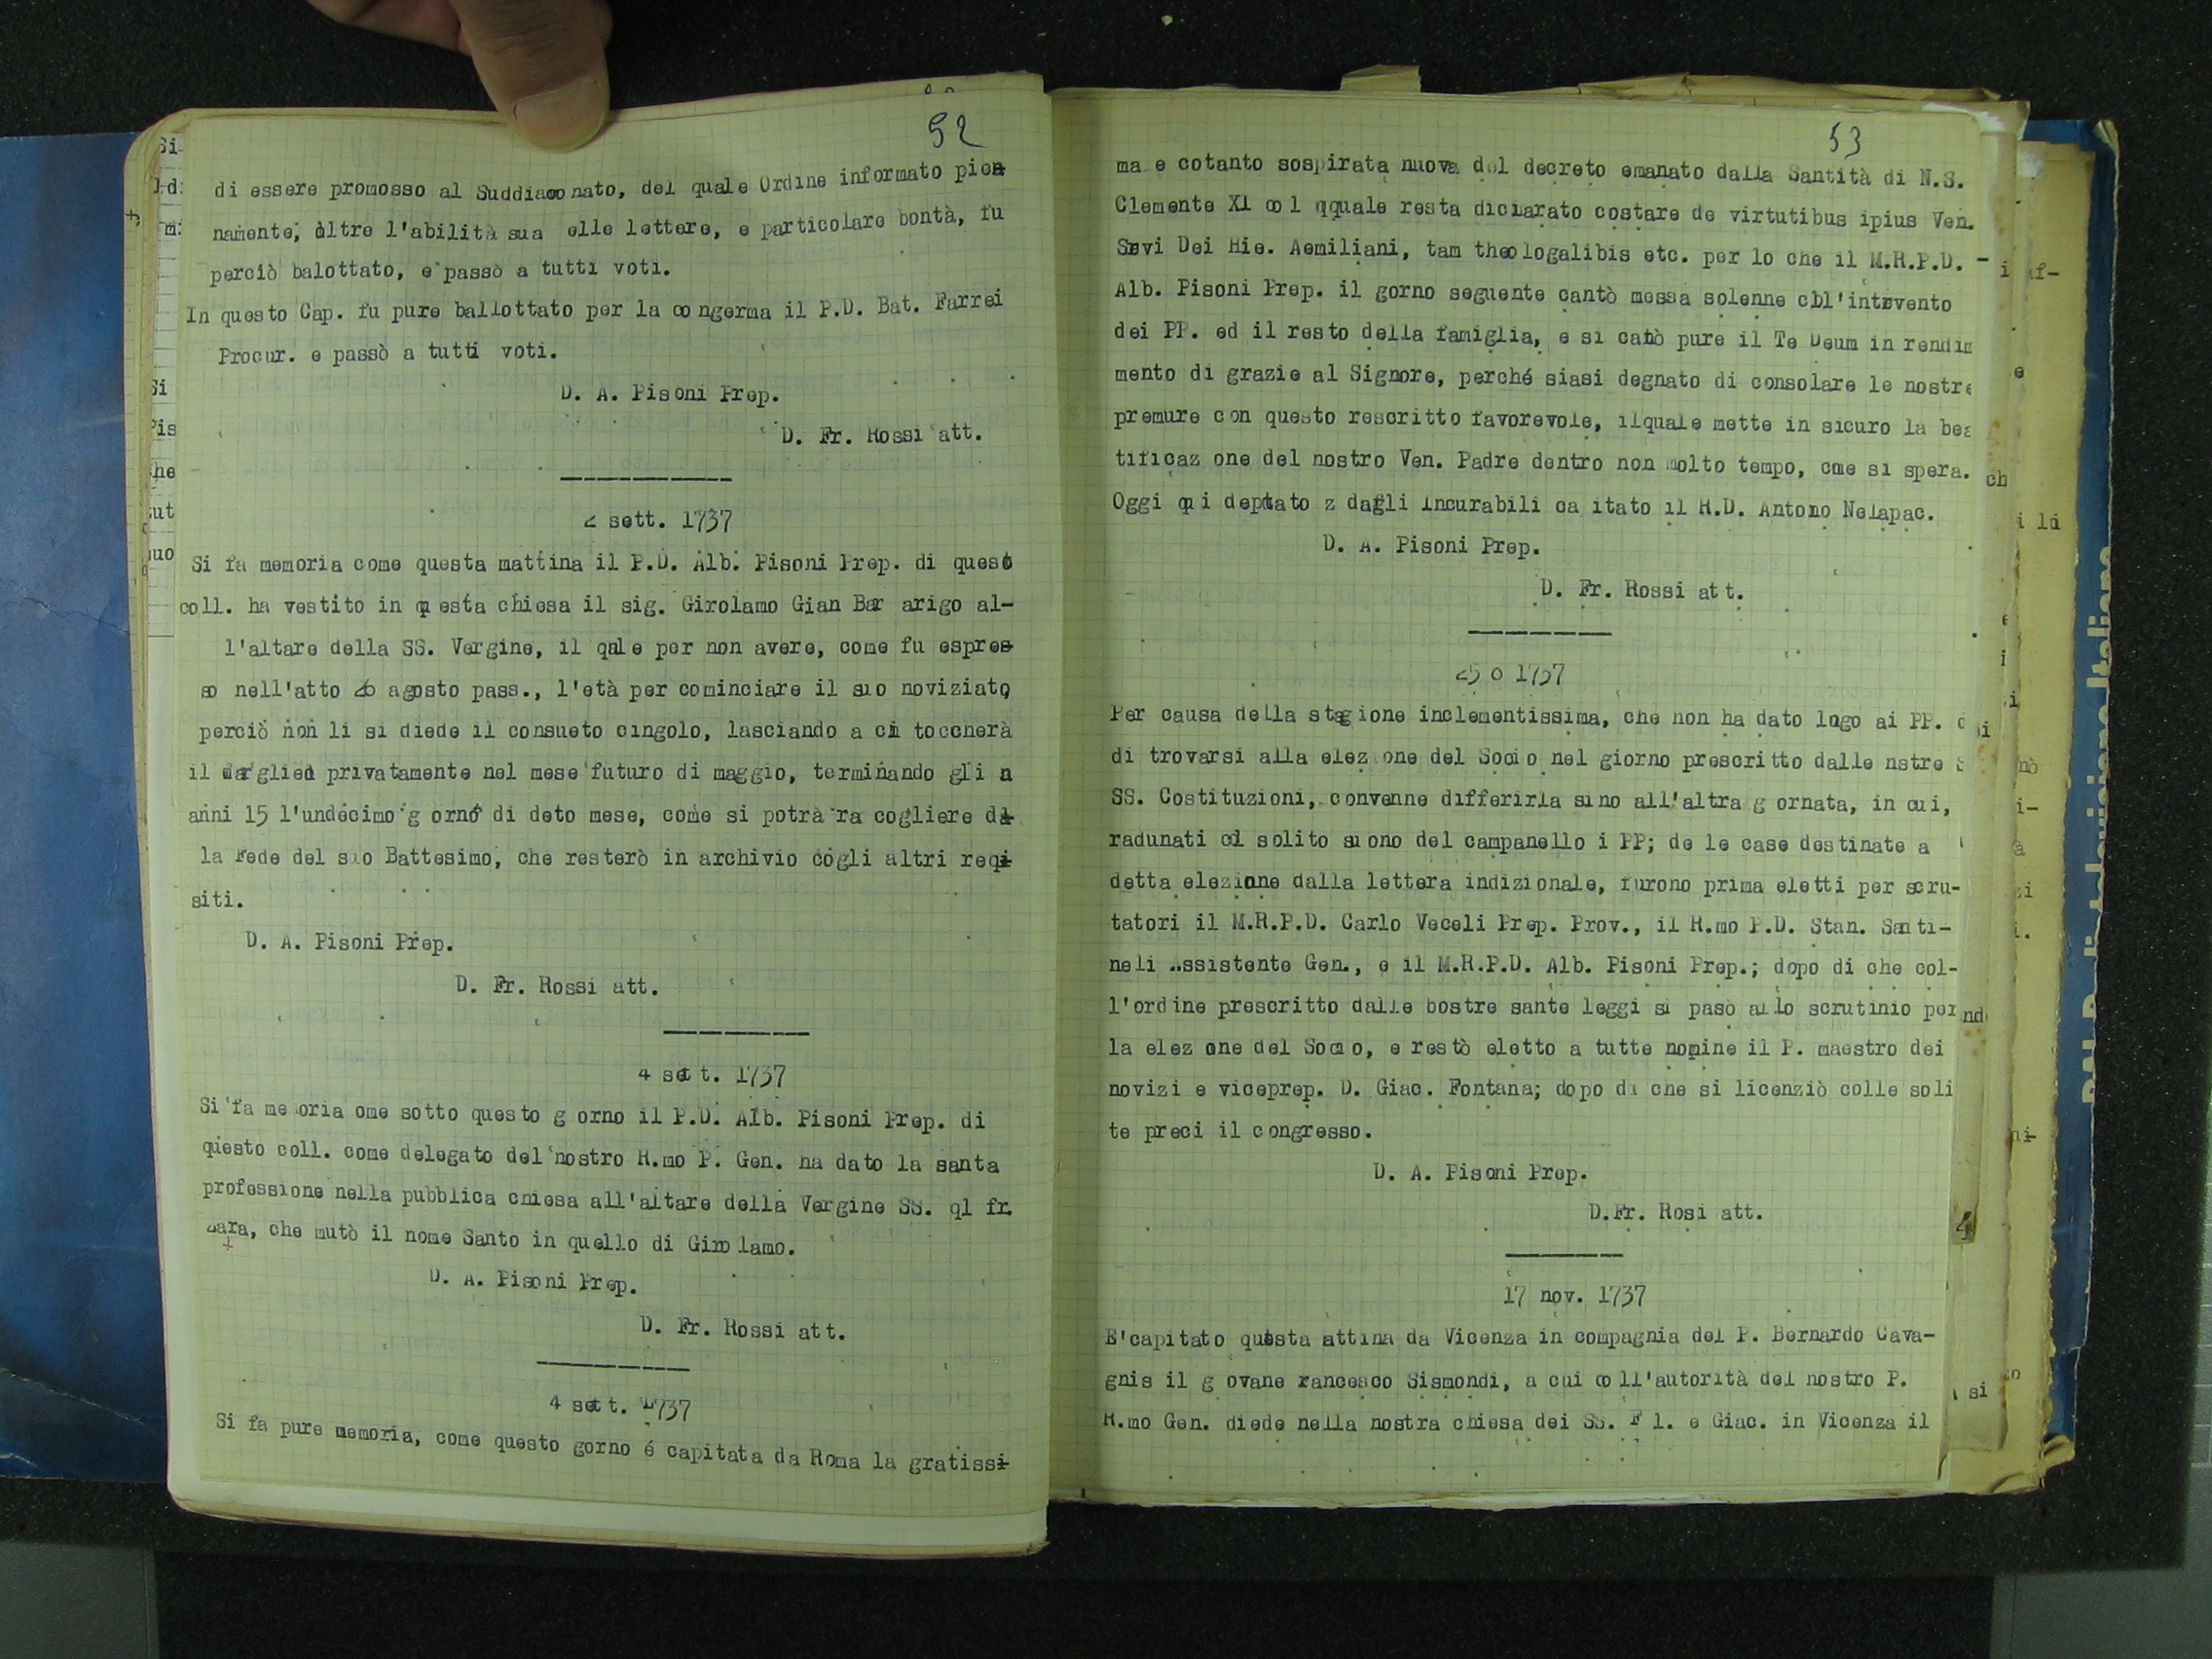 52
di essere promosso al Suddiaconato, del quale Ordine informato pien
namente, oltre l'abilità sua elle lettere, e particolare bontà, fu
perciò balottato, e passò a tutti voti.
In questo Cap. fu pure ballottato per la congerma il P.D. Bat. Farrei
Procur. e passò a tutti voti.
D. A. Pisoni Prep.
D. Fr. Rossi att.
2 sett. 1737
Si fa memoria come questa mattina il P.D. Alb. Pisoni Prep. di quest
coll. ha vestito in questa chiesa il sig. Girolamo Gian Bar arigo al-
l'altare della SS. Vergine, il quale per non avere, come fu espres
so nell'atto 26 agosto pass., l'età per cominciare il suo noviziato,
perciò non li si diede il consueto cingolo, lasciando a chi toccherà
il darglied privatamente nel mese futuro di maggio, terminando gli a
anni 15 l'undecimo g orno di deto mese, come si potrà ra cogliere dal
la Fede del suo Battesimo, che resterò in archivio cogli altri reqi
siti.
D. A. Pisoni Prep.
D. Fr. Rossi att.
4 sett. 1737
Si fa memoria ome sotto questo g orno il P.D. Alb. Pisoni Prep. di
questo coll. come delegato del nostro R.mo P. Gen. ha dato la santa
professione nella pubblica chiesa all'altare della Vergine SS. ql fr.
Zara, che mutò il nome Santo in quello di Girolamo.
D. A. Pisoni Prep.
D. Fr. Rossi att.
4 sett. 1737
Si fa pure memoria, come questo gorno é capitata da Roma la gratissi
53
ma e cotanto sospirata nuova del decreto emanato dalla Santità di N.S.
Clemente XI col qquale resta dichiarato costare de virtutibus ipius Ven.
Sevi Dei Hie. Aemiliani, tam theologalibis etc. per lo che il M.R.P.D.
Alb. Pisoni Prep. il gorno seguente cantò messa solenne cll'intevento
dei PP. ed il resto della famiglia, e si catò pure il Te Deum in rendim
mento di grazie al Signore, perché siasi degnato di consolare le nostre
premure con questo rescritto favorevole, ilquale mette in sicuro la bea
tificaz one del nostro Ven. Padre dentro non molto tempo, cme si spera.
Oggi qui deptato z dagli Incurabili ca itato il R.D. Antono Nelapac.
D. A. Pisoni Prep.
D. Fr. Rossi att.
25 o 1737
Per causa della stagione inclementissima, che non ha dato logo ai PP.
di trovarsi alla elez one del Socio nel giorno prescritto dalle nstre
SS. Costituzioni, convenne differirla sino all'altra g ornata, in cui,
radunati cl solito suono del campanello i PP; de le case destinate a
detta elezione dalla lettera indizionale, furono prima eletti per scru-
tatori il M.R.P.D. Carlo Veceli Prep. Prov., il R.mo P.D. Stan. Santi-
neli Assistente Gen., e il M.R.P.D. Alb. Pisoni Prep.; dopo di che col-
l'ordine prescritto dalle bostre sante leggi si pasò allo scrutinio per
la elez one del Socio, e restò eletto a tutte nomine il P. maestro dei
novizi e viceprep. D. Giac. Fontana; dopo di che si licenziò colle soli
te preci il congresso.
D. A. Pisoni Prep.
D.Fr. Rosi att.
17 nov. 1737
E'capitato questa attina da Vicenza in compagnia del P. Bernardo Cava-
gnis il g ovane rancesco Sismondi, a cui coll'autorità del nostro P.
R.mo Gen. diede nella nostra chiesa dei SS. F l. e Giac. in Vicenza il